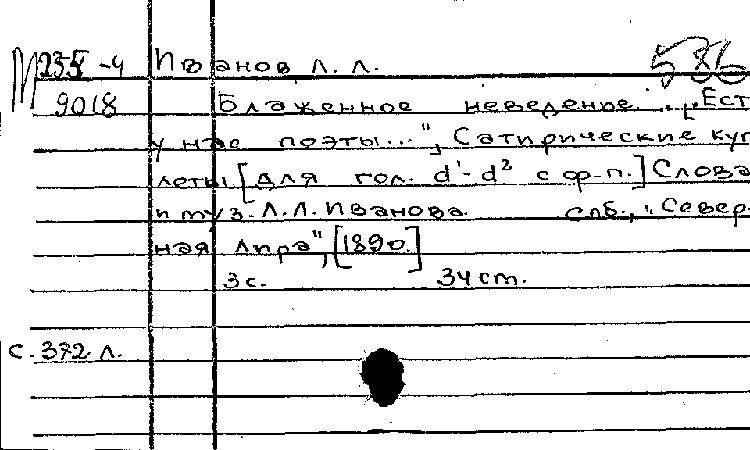 М 235 -4 Иванов Л. Л. 586
9018 Блаженное неведение... „Ест
у нас поэты...", Сатирические куп
леты [для гол. d¹-d² с ф-п.] Слова
и муз. Л.Л. Иванова. СПБ., „Север-
ная лира", [1890.]
3 с. 34 ст.
с. 372 л.